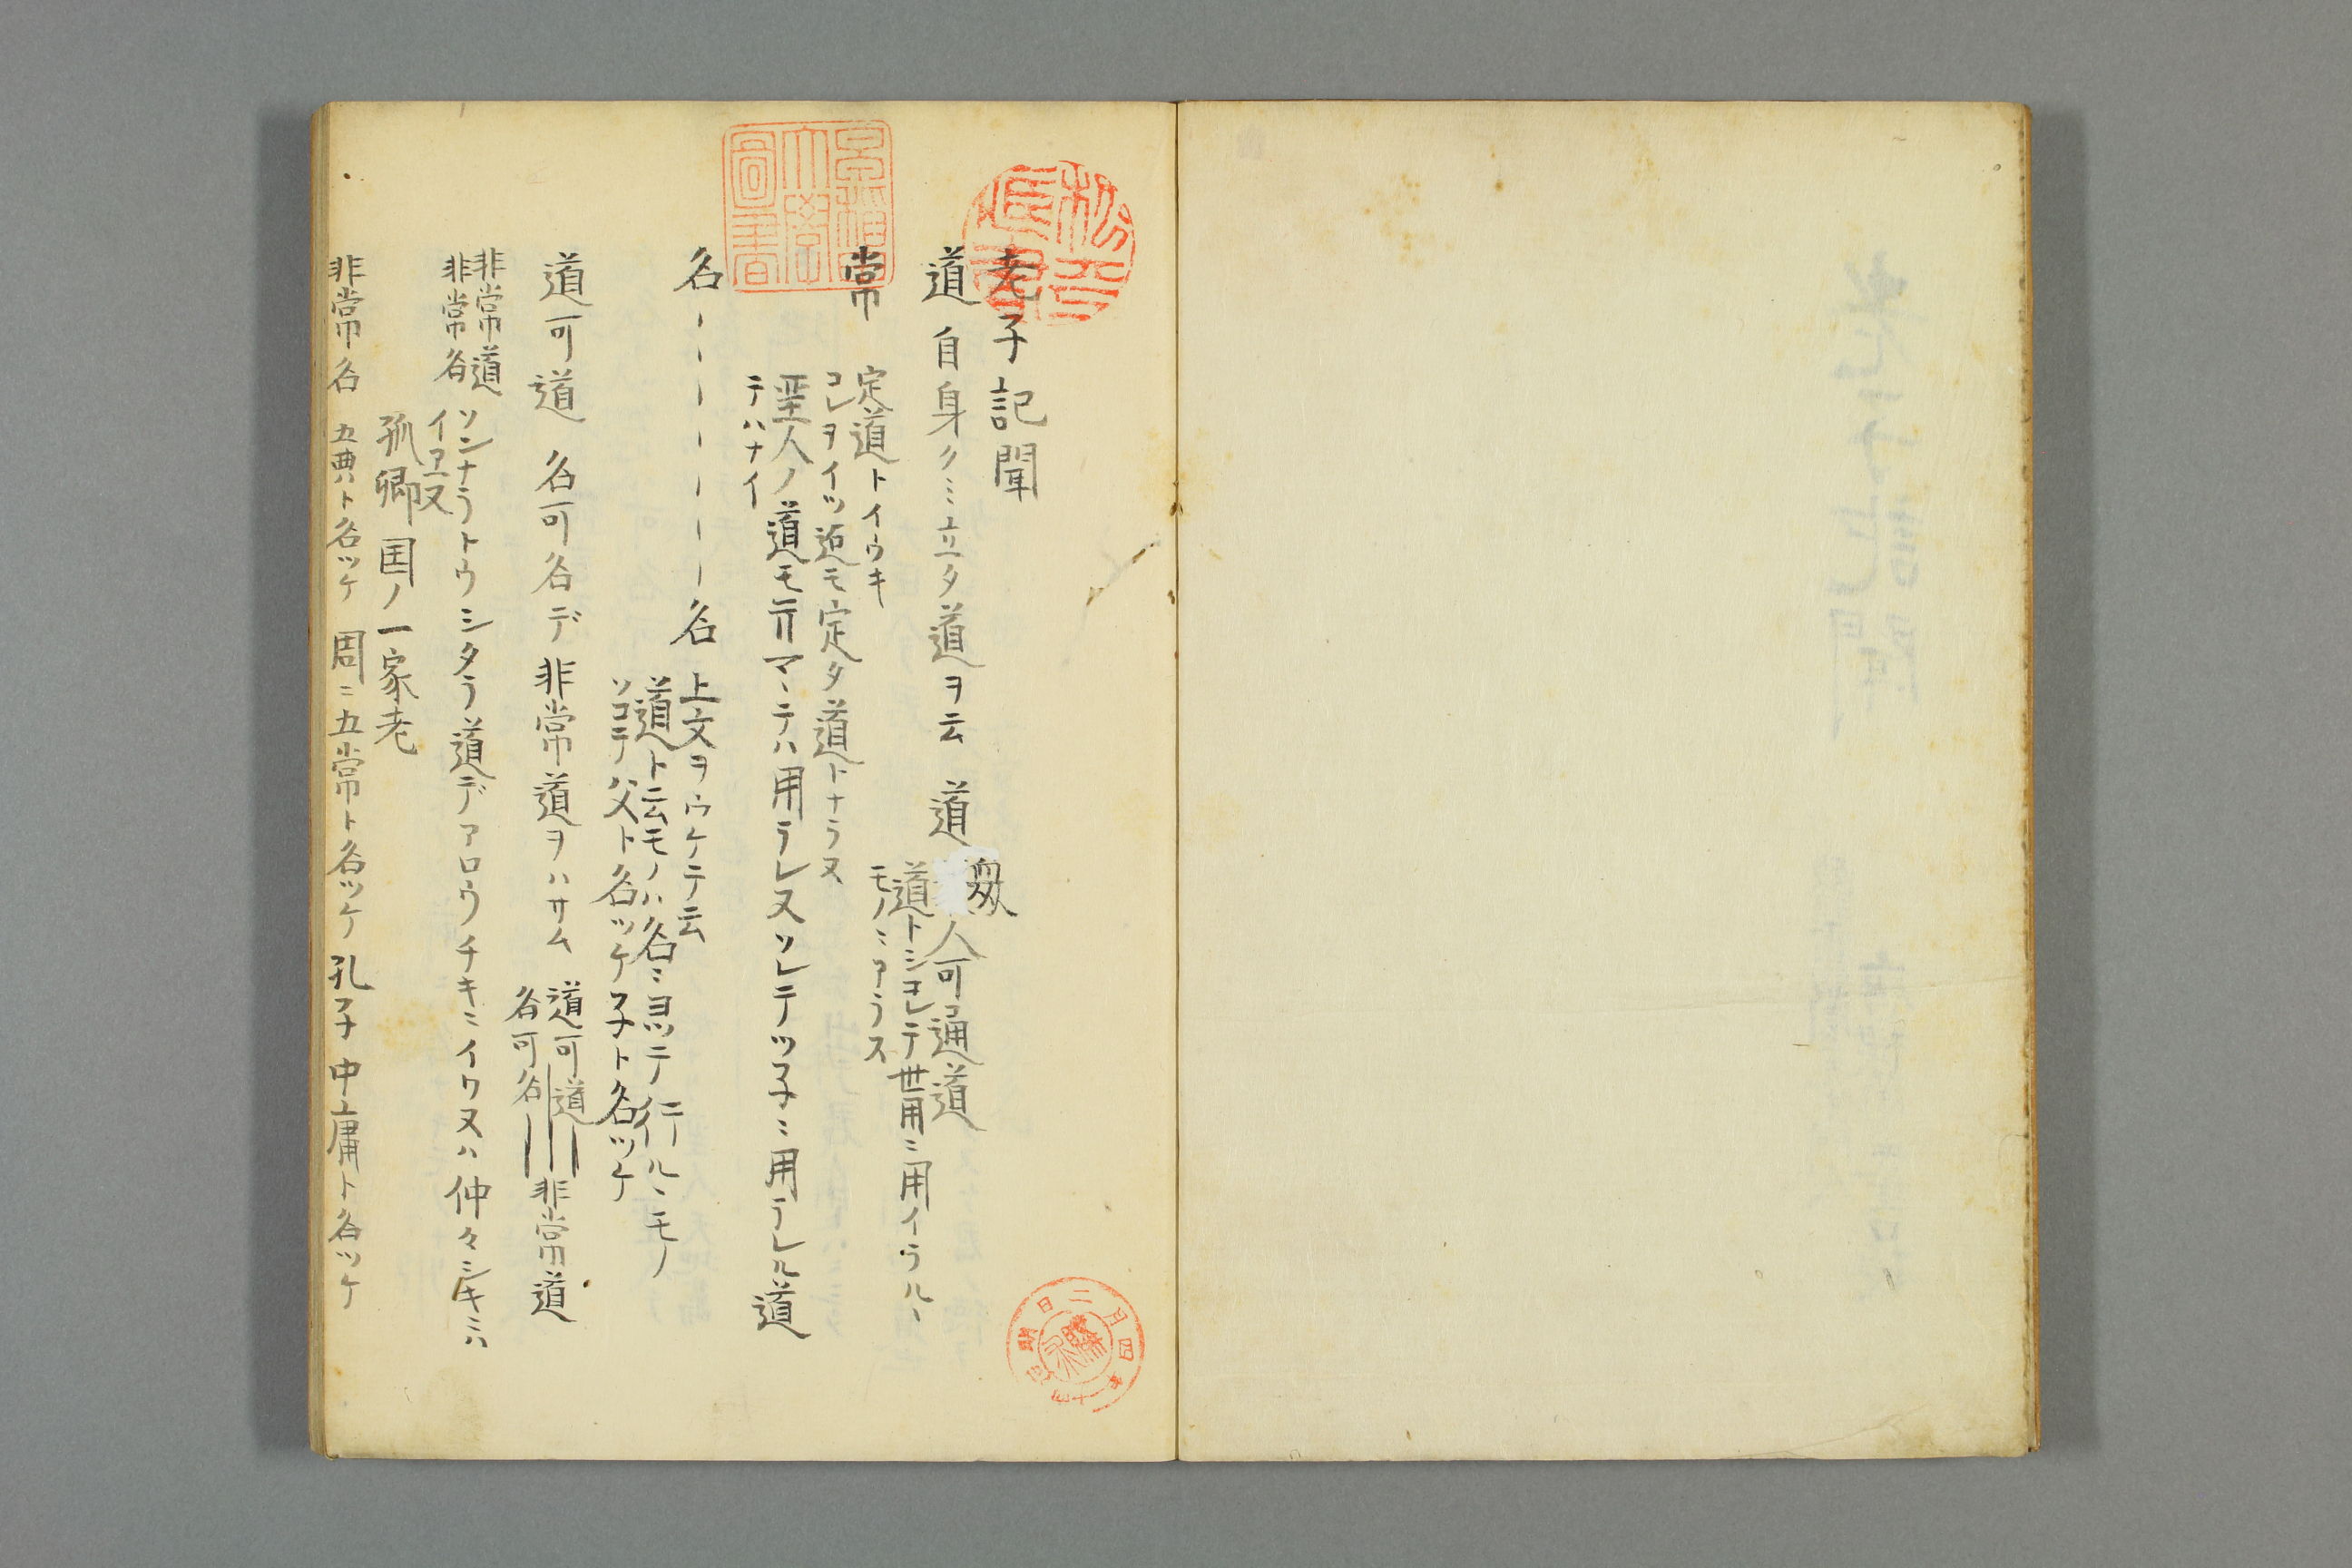 老子記聞
道 自身クミ立タ道ヲ云 道 人可通道
道トシコレテ世用ニ用イラルヽ
モノニアラス
常 定道トイウキ
コレヲイツ迠モ定タ道トナラヌ
聖人ノ道モ斉マヽテハ用ラレヌソレテツ子ニ用ラレル道
テハナイ
名 名 上文ヲウケテ云
道ト云モノハ名ニヨツテ行ルヽモノ
ソコテ父ト名ツケ子ト名ツケ
道可道 名可名デ非常道ヲハサム 道可道 非常道
名可名
非常道 ソンナラトウシタラ道デアロウチキニイワヌハ仲々シキミハ
非常名
孤卿 国ノ一家老
非常名 五典ト名ツケ 周ニ五常ト名ツケ 孔子中庸ト名ツケ